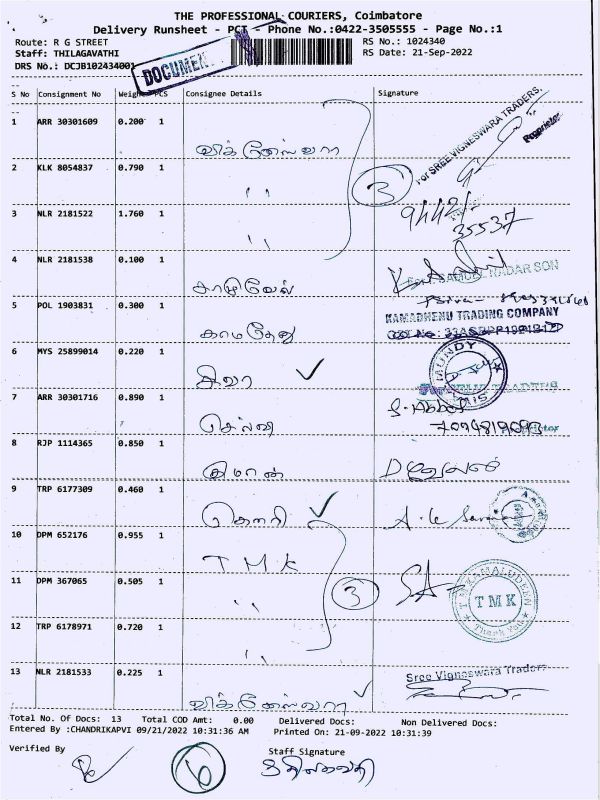 THE PROFESSIONAL COURIERS, Coimbatore
Delivery Runsheet - PCT - Phone No.:0422-3505555 - Page No.:1
Route: R G STREET RS No.: 1024340
Staff: THILAGAVATHI RS Date: 21-Sep-2022
DRS No.: DCJB102434001
DOCUMEN
S No Consignment No Weight PCS Consignee Details Signature
1 ARR 30301609 0.200 1 விக்னேஸ்வரா For SREE VIGNESWARA TRADERS, Proprietor
2 KLK 8054837 0.790 1 ,, 3
94421
35537
3 NLR 2181522 1.760 1 ,,
4 NLR 2181538 0.100 1 RADAR SON
5 POL 1903831 0.300 1 காமதேனு KAMADHENU TRADING COMPANY
6 MYS 25899014 0.220 1 சிவா ✓ MUNDY
7 ARR 30301716 0.890 1 செல்வி
8 RJP 1114365 0.850 1
9 TRP 6177309 0.460 1 கௌரி ✓
10 DPM 652176 0.955 1 T M K
11 DPM 367065 0.505 1 ,, 3 SA T M K Thank You
12 TRP 6178971 0.720 1 ,,
13 NLR 2181533 0.225 1 விக்னேஸ்வரா ✓ Sree Vigneswara Traders
Total No. Of Docs: 13 Total COD Amt: 0.00 Delivered Docs: Non Delivered Docs:
Entered By :CHANDRIKAPVI 09/21/2022 10:31:36 AM Printed On: 21-09-2022 10:31:39
Verified By 6 Staff Signature
திலகவதி